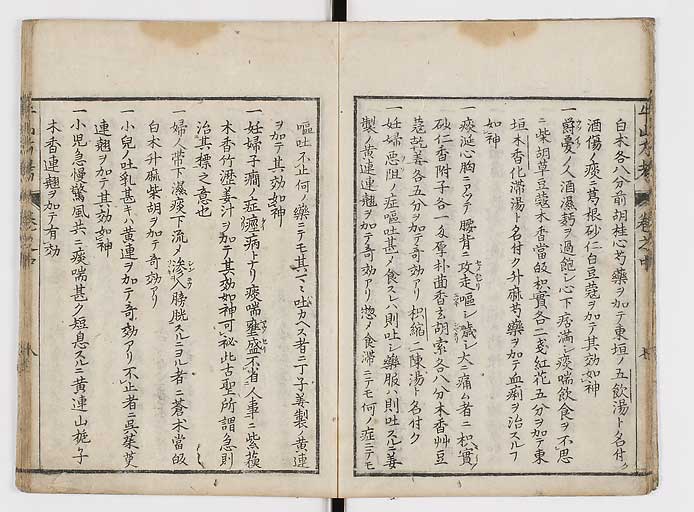 白朮各八分前胡桂心芍藥ヲ加テ東垣ノ五飲湯ト名付ク
酒傷ノ痰ニ葛根砂仁白豆蔲ヲ加テ其効如神
一爵憂ノ人酒濕麪ヲ過飽シ心下痞滿シ痰喘飲食ヲ不思
ニ柴胡草豆蔲木香當皈枳實各二戔紅花五分ヲ加テ東
垣木香化滯湯ト名付ク升麻芍藥ヲ加テ血痢ヲ治スルフ
如神
一痰涎心胸ニアツテ腰背ニ攻走嘔シ噦シ大ニ痛ム者ニ枳實
砂仁香附子各一戔厚朴茴香玄胡索各八分木香艸豆
蔲乾姜各五分ヲ加テ奇効アリ枳縮二陳湯ト名付ク
一妊婦惡阻ノ症嘔吐甚ク食スレハ則吐シ藥服ハ則吐スルニ姜
製ノ黄連連翹ヲ加テ奇効アリ惣ノ食滯ニテモ何ノ症ニテモ
嘔吐不止何ノ藥ニテモ其マヽ吐カヘス者ニ丁子姜製ノ黄連
ヲ加テ其効如神
一妊婦子癇ノ症癲病トナリ痰喘壅盛不省人事ニ紫蘇
木香竹瀝姜汁ヲ加テ其効如神可秘此古聖所謂急則
治其標之意也
一婦人帶下濕痰下流ノ滲入膀胱スルニヨル者ニ蒼木當皈
白木升麻柴胡ヲ加テ奇効アリ
一小兒ノ吐乳甚キハ黄連ヲ加テ奇効アリ不止者ニ呉茱萸
連翹ヲ加テ其効如神
一小児急慢驚風共ニ痰喘甚ク短息スルニ黄連山梔子
木香連翹ヲ加テ有効